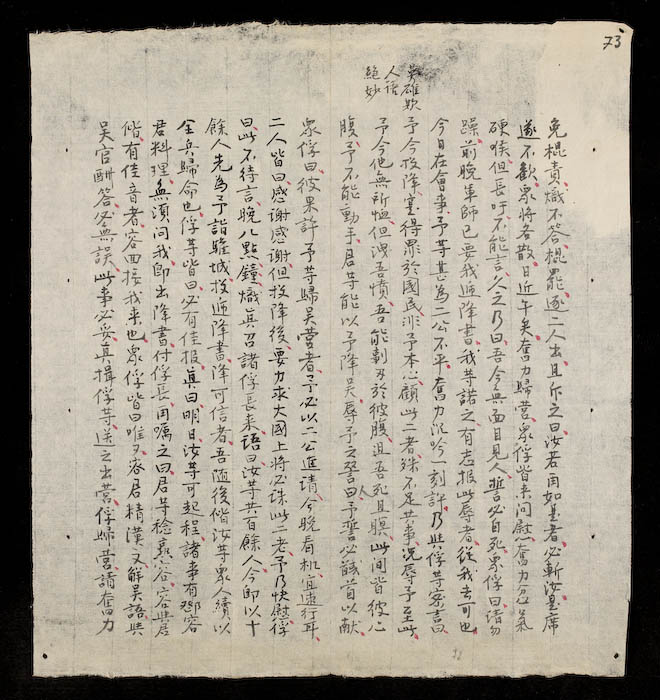 73
英雄欺
人语
絕妙
免棍責熾不答棍罷逐二人出且斥之曰汝若再如是者必斬汝是席
遂不歡眾將各散日近午矣奮力歸營眾俘皆来问慰奮力忿氣
硬喉但長吁不能言久之乃曰吾今無面目見人誓必自死眾俘曰請勿
躁前晚軍師已要我递降書我等諾之有志报此辱者從我去可也
今日在會事予等甚為二公不平奮力沉吟一刻許乃與俘等密言曰
予今投降寔得罪於國民非予本心顧此二者殊不足共事況辱予至此
予今他無所恤但洩吾憤吾能剚刃於彼腹吾死且瞑此间皆彼心
腹予不能動手君等能以予降吴辱予之人誓曰予誓必馘首以献
眾俘曰彼果許予等歸吴营者予必以二公進請今晚看机宜速行耳
二人皆曰感谢感谢但投降後要力求大國上將必誅此二老予乃快慰俘
曰此不待言晚八點鐘熾真召諸俘長来语曰汝等共百餘人今即以十
餘人先為予詣驩城投递降書降可信者吾随後偕汝等眾人續以
全兵歸命也俘等皆曰必有佳报真曰明日汝等可起程諸事有鄧容
君料理無須问我即出降書付俘長再嘱之曰君等稔熟容容與君
偕有佳音者容面接我来也眾俘皆曰唯又容君精漢文解吴語與
吴官酬答必無誤此事必妥真揖俘等送之出营俘歸营請奮力